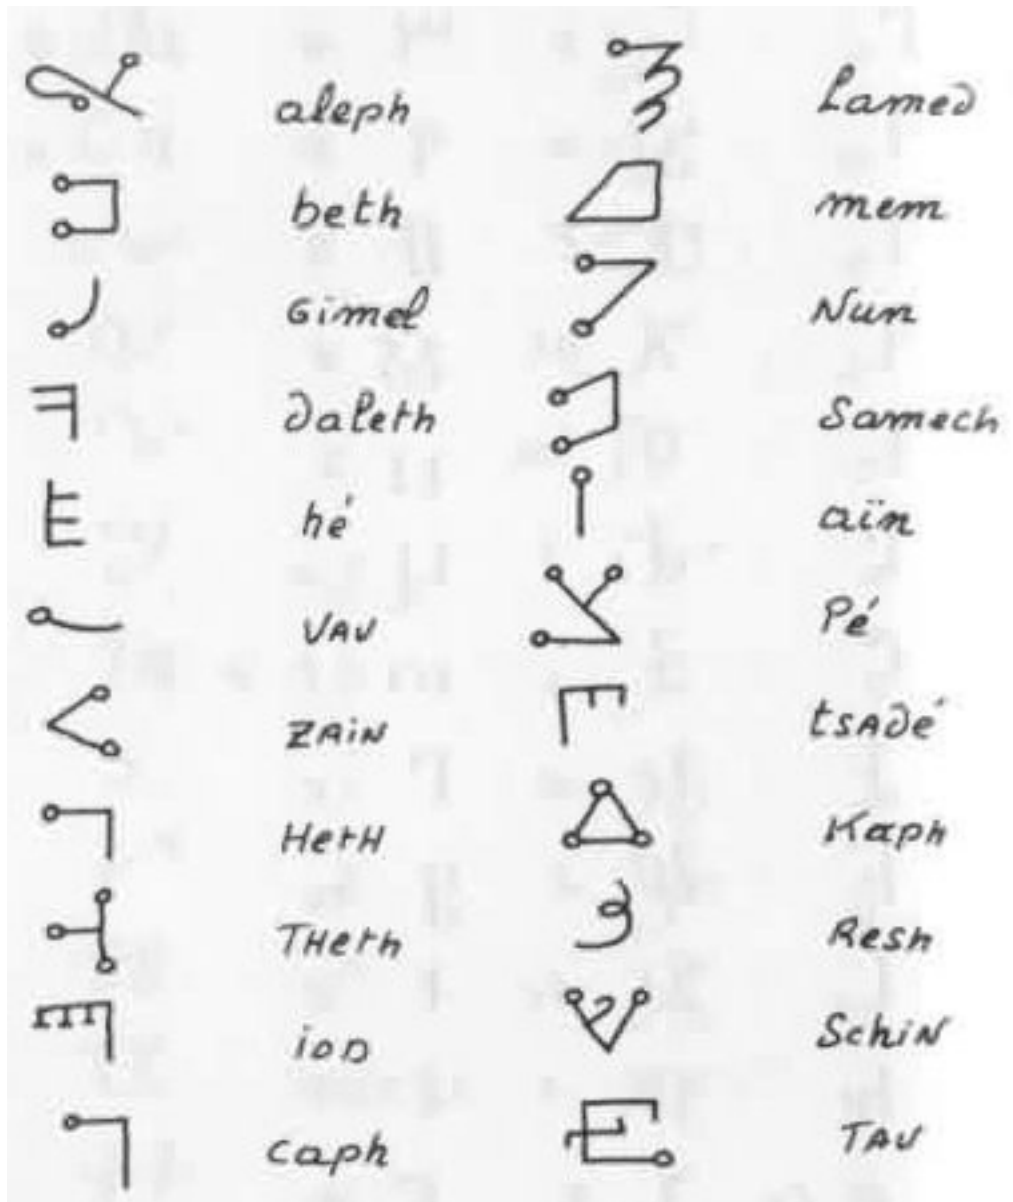 aleph
beth
Gimel
daleth
hé
VAV
ZAiN
HetH
THeth
ioD
caph
Lamed
mem
Nun
Samech
aïn
Pé
tsAdé
Kaph
Resh
SchiN
TAV